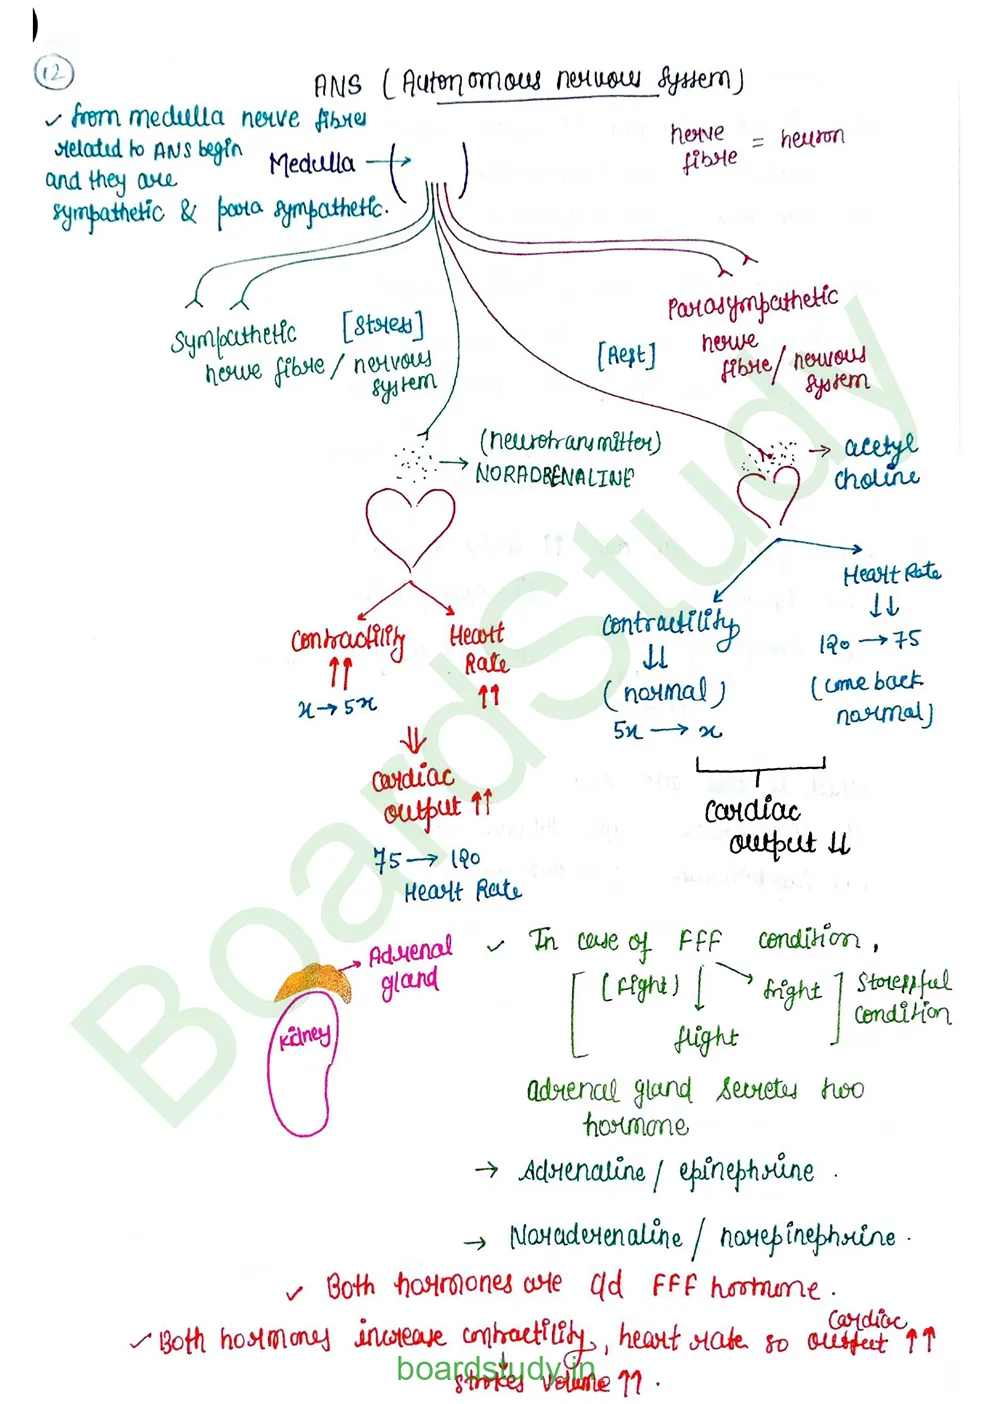 12
ANS (Autonomous nervous system)
✓ from medulla nerve fibres
related to ANS begin
and they are
sympathetic & para sympathetic.
Medulla →
nerve fibre = neuron
Sympathetic [Stress]
nerve fibre / nervous
system
[Rest]
Parasympathetic
nerve
fibre / nervous
system
(neurotransmitter)
→ NORADRENALINE
→ acetyl
choline
Contractility
↑↑
x → 5x
Heart
Rate
↑↑
⇓
Cardiac
output ↑↑
75 → 120
Heart Rate
Contractility
↓↓
(normal)
5x → x
Heart Rate
↓↓
120 → 75
(come back
normal)
Cardiac
output ↓↓
→ Adrenal
gland
Kidney
✓ In case of FFF condition,
[(Fight) ↓ fright] Stressful
condition
flight
adrenal gland secretes two
hormone
→ Adrenaline / epinephrine .
→ Noraderenaline / norepinephrine .
✓ Both hormones are q/d FFF hormone .
✓ Both hormones increase contractility, heart rate so cardiac output ↑↑
↓
strokes volume ↑↑ .
BoardStudy
boardstudy.in